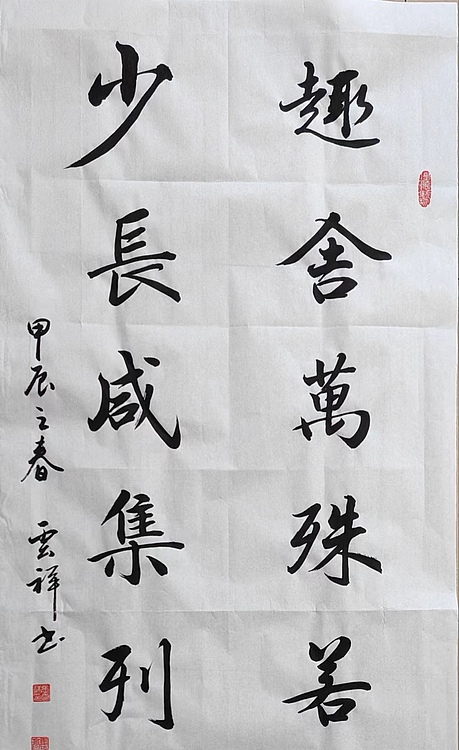 趣舍萬殊若
少長咸集列
甲辰之春 雲祥书